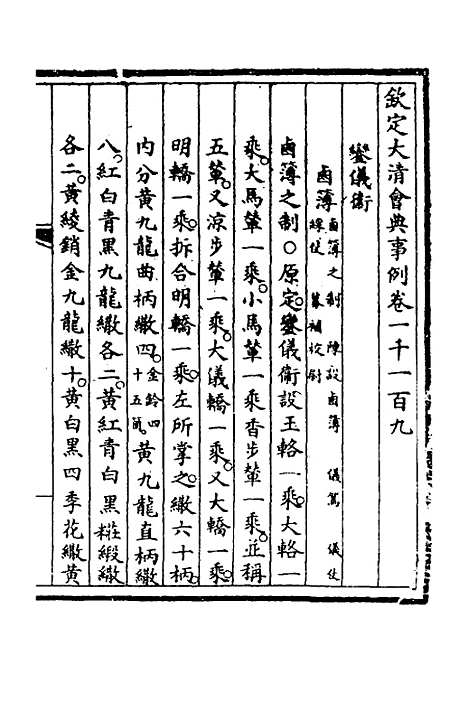 欽定大清會典事例卷一千一百九
鑾儀衛
鹵簿 鹵簿之制 陳設鹵簿 儀駕 儀仗
線從 募補校尉
鹵簿之制○原定鑾儀衛設玉輅一乘大輅一
乘大馬輦一乘小馬輦一乘香步輦一乘並稱
五輦又涼步輦一乘大儀轎一乘又大轎一乘
明轎一乘折合明轎一乘左所掌之繖六十柄
內分黃九龍曲柄繖四金鈴四十五𠈅黃九龍直柄繖
八紅白青黑九龍繖各二黃紅青白黑糚緞繖
各二黃綾銷金九龍繖十黃白黑四季花繖黃